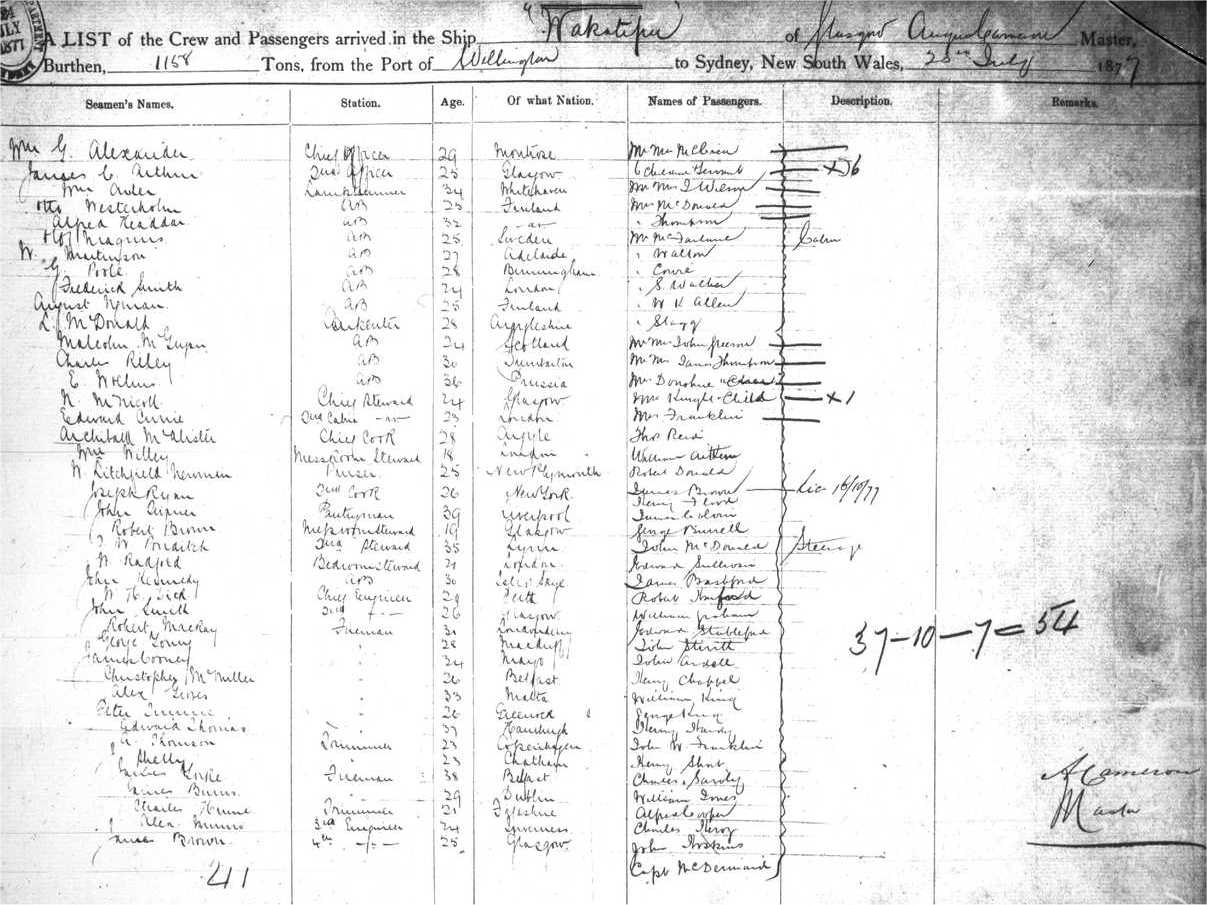 24 JULY 1877
"Wakatipu" of Glasgow Angus Cameron Master,
A LIST of the Crew and Passengers arrived in the Ship
Burthen, 1158 Tons, from the Port of Wellington to Sydney, New South Wales, 23rd July 1877
Seamen's Names. Station. Age. Of what Nation. Names of Passengers. Description. Remarks.
Wm G. Alexander Chief Officer 29 Montrose Mr Mrs
James C. Arthur 2nd Officer 25 Glasgow 6 Children Servant X 6
Wm Lamptrimmer 34 Whitehaven Mr Mrs J Wilson
Otto Westerholm AB 23 Finland Mrs McDonald
Alfred AB 32 -do- " Thompson
Magnus AB 25 Sweden Mr McFarlane Cabin
W. Martinson AB 27 Adelaide " Walton
G. Poole AB 28 Birmingham "
Frederick Smith AB 24 London " S. Walker
August Nyman AB 25 Finland " W K Allen
L. McDonald Carpenter 28 Argyleshire " Stagg
Malcolm AB 24 Scotland Mr Mrs John
Charles Riley AB 30 Dumbarton Mr Mrs James Thompson
E. AB 36 Prussia Mr Donohue
N. McNicoll Chief Steward 24 Glasgow Mrs Child X 1
Edward Currie 2nd Cabin -"- 23 London Mrs Franklin
Archibald McAlister Chief Cook 28 Argyle Thos Reid
Wm Willey Messroom Steward 18 London William Aitken
W. Litchfield Newman Purser 25 New Plymouth Robert Donald
Joseph Ryan 2nd Cook 26 New York James Brown 16/10/77
John Pantryman 39 Liverpool Henry Flood
Robert Brown Messroom Steward 19 Glasgow George Burrell
W. 2nd Steward 35 Lynn John McDonald Steerage
W. Radford Bedroom Steward 21 London Edward Sullivan
John Kennedy AB 30 Isle of Skye James Bashford
W. H. Dick Chief Engineer 29 Robert
John Smith 2nd -"- 26 Glasgow William Graham
Robert MacKay Fireman 31 Londonderry Edward Stubleford
George 28 Macduff John
James Cooney 24 Mayo John
Christopher McMiller 26 Belfast Henry Chappel
Alex 33 Malta William King
Peter 26 Greenock George King
Edward Thomas 37 Hamburgh Henry Hardy
A. Thomson Trimmer 23 Copenhagen John W. Franklin
Shelly 23 Chatham Henry
James Fireman 38 Belfast Charles
James Burns 29 Dublin William Innes
Charles Trimmer 21 Alfred Cooper
Alex Munro 3rd Engineer 24 Inverness Charles
James Brown 4th -"- 25 Glasgow John Hoskins
Capt McDermaid
37-10-7=54
41
A Cameron
Master